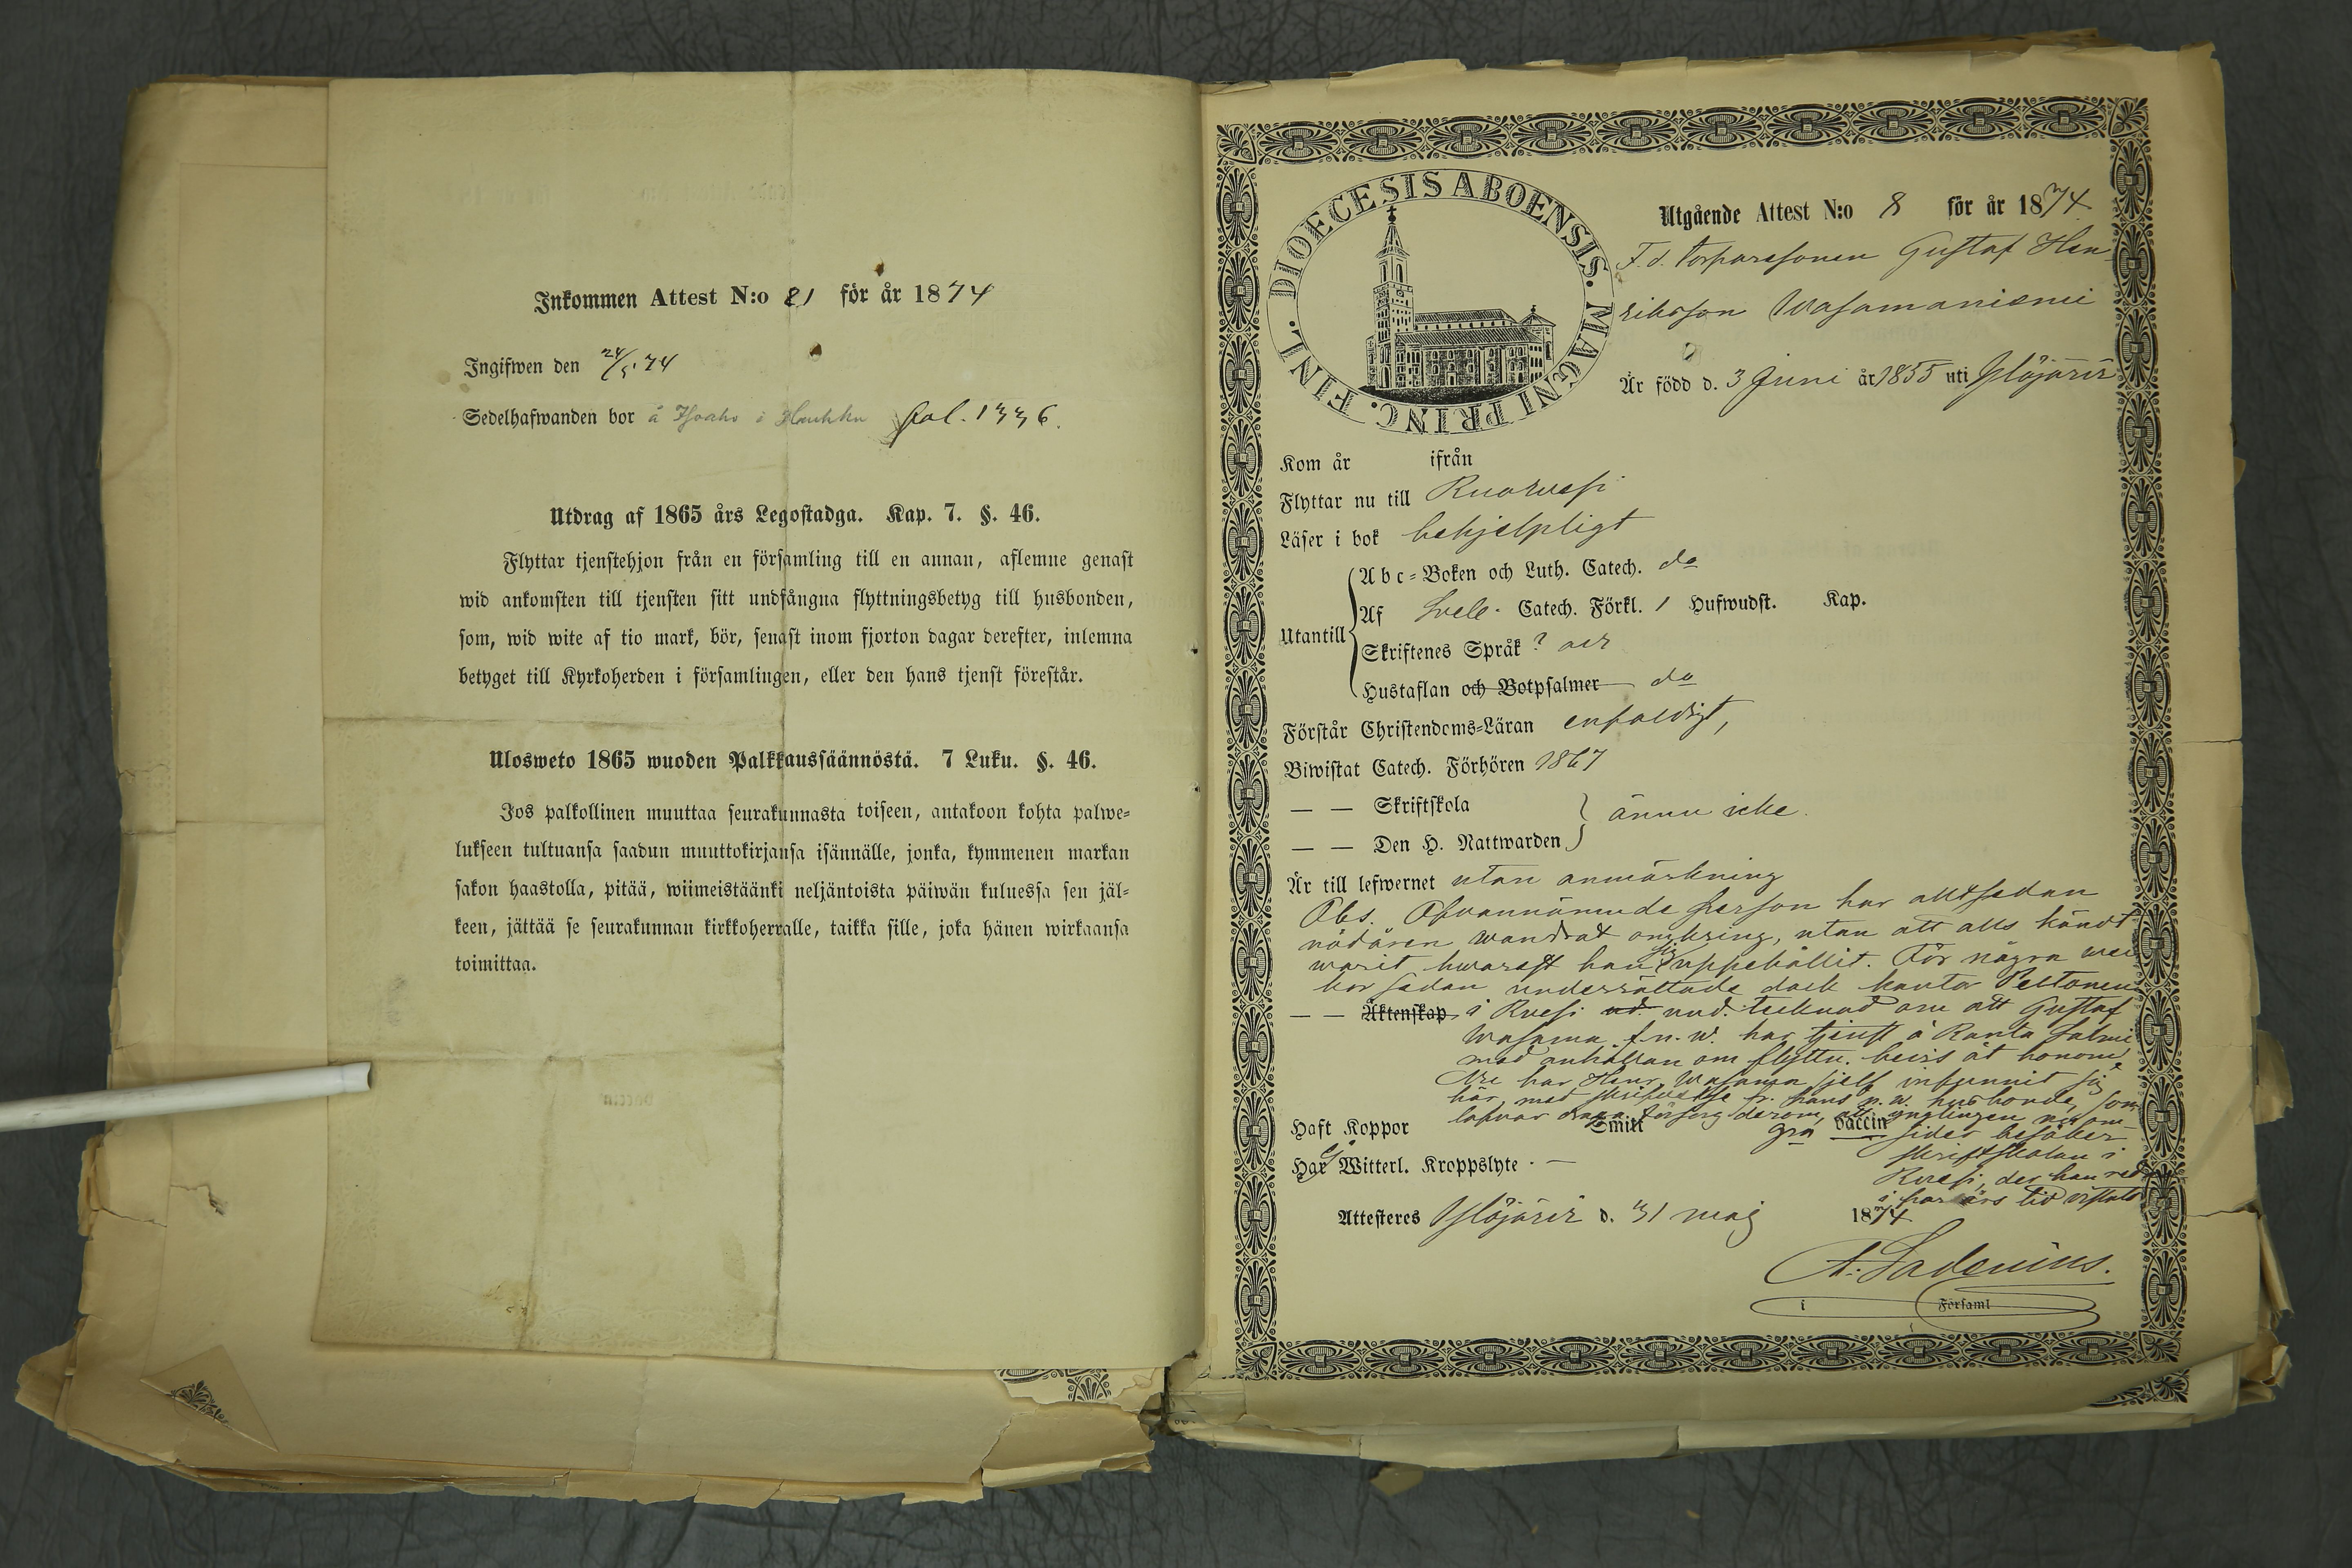 Inkommen Attest N:o 21 för år 1874
Ingifwen den 24/5 74
Sedelhafwanden bor å i Haukka pol. 1336.
Utdrag af 1865 års Legostadga. Kap. 7. §. 46.
Flyttar tjenstehjon från en församling till en annan, aflemne genast
wid ankomsten till tjensten sitt undfångna flyttningsbetyg till husbonden,
som, wid wite af tio mark, bör, senast inom fjorton dagar derefter, inlemna
betyget till Kyrkoherden i församlingen, eller den hans tjenst förestår.
Ulosweto 1865 wuoden Palkkaussäännöstä. 7 Luku. §. 46.
Jos palkollinen muuttaa seurakunnasta toiseen, antakoon kohta palwe-
lukseen tultuansa saadun muuttokirjansa isännälle, jonka, kymmenen markan
sakon haastolla, pitää, wiimeistäänki neljäntoista päiwän kuluessa sen jäl-
keen, jättää se seurakunnan kirkkoherralle, taikka sille, joka hänen wirkaansa
toimittaa.
DIOECESIS ABOENSIS. MAGNI PRINC. FINL.
Utgående Attest N:o 8 för år 1874
F. d. torparesonen Gustaf Hen-
riksson Wasamaniemi
Är född d. 3 Juni år 1855 uti Ylöjärvi
Kom år ifrån
Flyttar nu till Ruovesi
Läser i bok behjelpligt
Utantill
Abc-Boken och Luth. Catech. do
Af Svebe. Catech. Förkl. 1 Hufwudst. Kap.
Skriftenes Språk ?
Hustaflan och Botpsalmer do
Förstår Christendoms-Läran enfaldigt,
Biwistat Catech. Förhören 1867
— — Skriftskola
ännu icke.
— — Den H. Nattwarden
Är till lefwernet utan anmärkning
Obs. Ofvannämnde person har alltsedan
nödåren wandrat omkring, utan att alls kändt
warit hwarest han sig uppehållit. För några wec-
kor sedan underrättade dock kantor Peltonen
— — Äktenskap i Rvesi und. tecknad om att Gustaf
Wasama f. n. w. har tjenst å Ranta
med anhållan om flyttn. bevis åt honom.
Nu har Henr. Wasama sjelf infunnit sig
här med fr. hans n. w. husbonde, som
lofvar draga försorg derom, att ynglingen
Haft Koppor Smitt gm vaccin sider besöker
skriftskolan i
Har Ej Witterl. Kroppslyte. —
Rvesi, der han red
i par års tid vistats
Attesteres Ylöjärvi d. 31 maj 1874
A. Ladenius.
i Församl